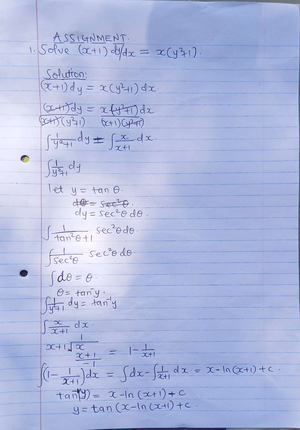 ASSIGNMENT.
1. Solve (x+1) dy/dx = x(y²+1).
Solution:
(x+1) dy = x(y²+1) dx
(x+1) dy / (x+1)(y²+1) = x(y²+1) dx / (x+1)(y²+1)
∫ 1/(y²+1) dy = ∫ x/(x+1) dx
∫ 1/(y²+1) dy
let y = tan θ
dθ = sec²θ
dy = sec²θ dθ.
∫ 1/(tan²θ+1) sec²θ dθ
∫ 1/sec²θ sec²θ dθ.
∫ dθ = θ
θ = tan⁻y.
∫ 1/(y²+1) dy = tan⁻y
∫ x/(x+1) dx
1
x+1 √ x
x+1
-1 = 1 - 1/(x+1)
∫(1 - 1/(x+1)) dx = ∫dx - ∫ 1/(x+1) dx = x - ln(x+1) + c.
tan⁻(y) = x - ln(x+1) + c
y = tan (x - ln(x+1) + c.